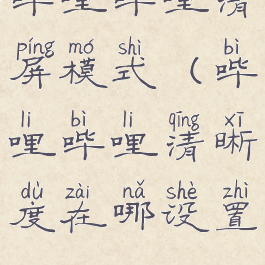 哔哩哔哩清
píng mó shì bì
屏模式（哔
li bì li qīng xī
哩哔哩清晰
dù zài nǎ shè zhì
度在哪设置